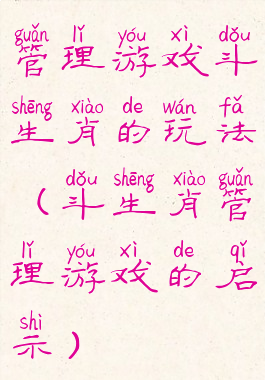 guǎn lǐ yóu xì dǒu
管理游戏斗
shēng xiào de wán fǎ
生肖的玩法
dǒu shēng xiào guǎn
（斗生肖管
lǐ yóu xì de qǐ
理游戏的启
shì
示）